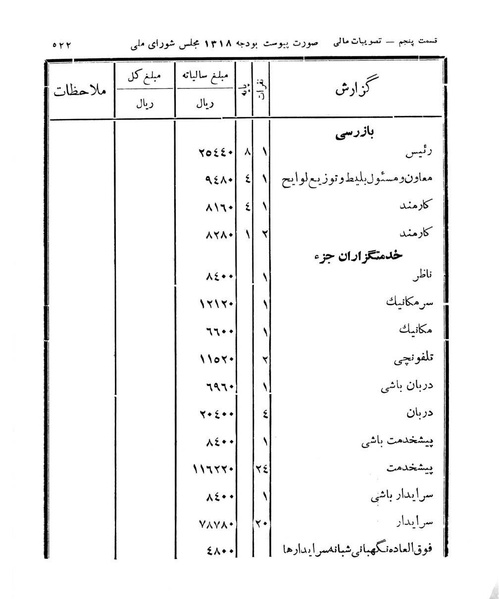 قسمت پنجم — تصویبات مالی صورت پیوست بودجه ۱۳۱۸ مجلس شورای ملی ۵۲۲
گزارش نفرات پایه مبلغ سالیانه مبلغ کل ملاحظات
ریال ریال
بازرسی
رئیس ۱ ۸ ۲۵۴۴۰
معاون و مسئول بلیط و توزیع لوایح ۱ ٤ ۹٤۸۰
کارمند ۱ ٤ ۸۱۶۰
کارمند ۲ ۱ ۸۲۸۰
خدمتگزاران جزء
ناظر ۱ ۸٤۰۰
سر مکانیك ۱ ۱۲۱۲۰
مکانیك ۱ ۶۶۰۰
تلفونچی ۲ ۱۱۵۲۰
دربان باشی ۱ ۶۹۶۰
دربان ٤ ۲۰٤۰۰
پیشخدمت باشی ۱ ۸٤۰۰
پیشخدمت ۲٤ ۱۱۶۲۲۰
سرایدار باشی ۱ ۸٤۰۰
سرایدار ۲۰ ۷۸۷۸۰
فوق العاده نگهبانی شبانه سرایدارها ٤۸۰۰